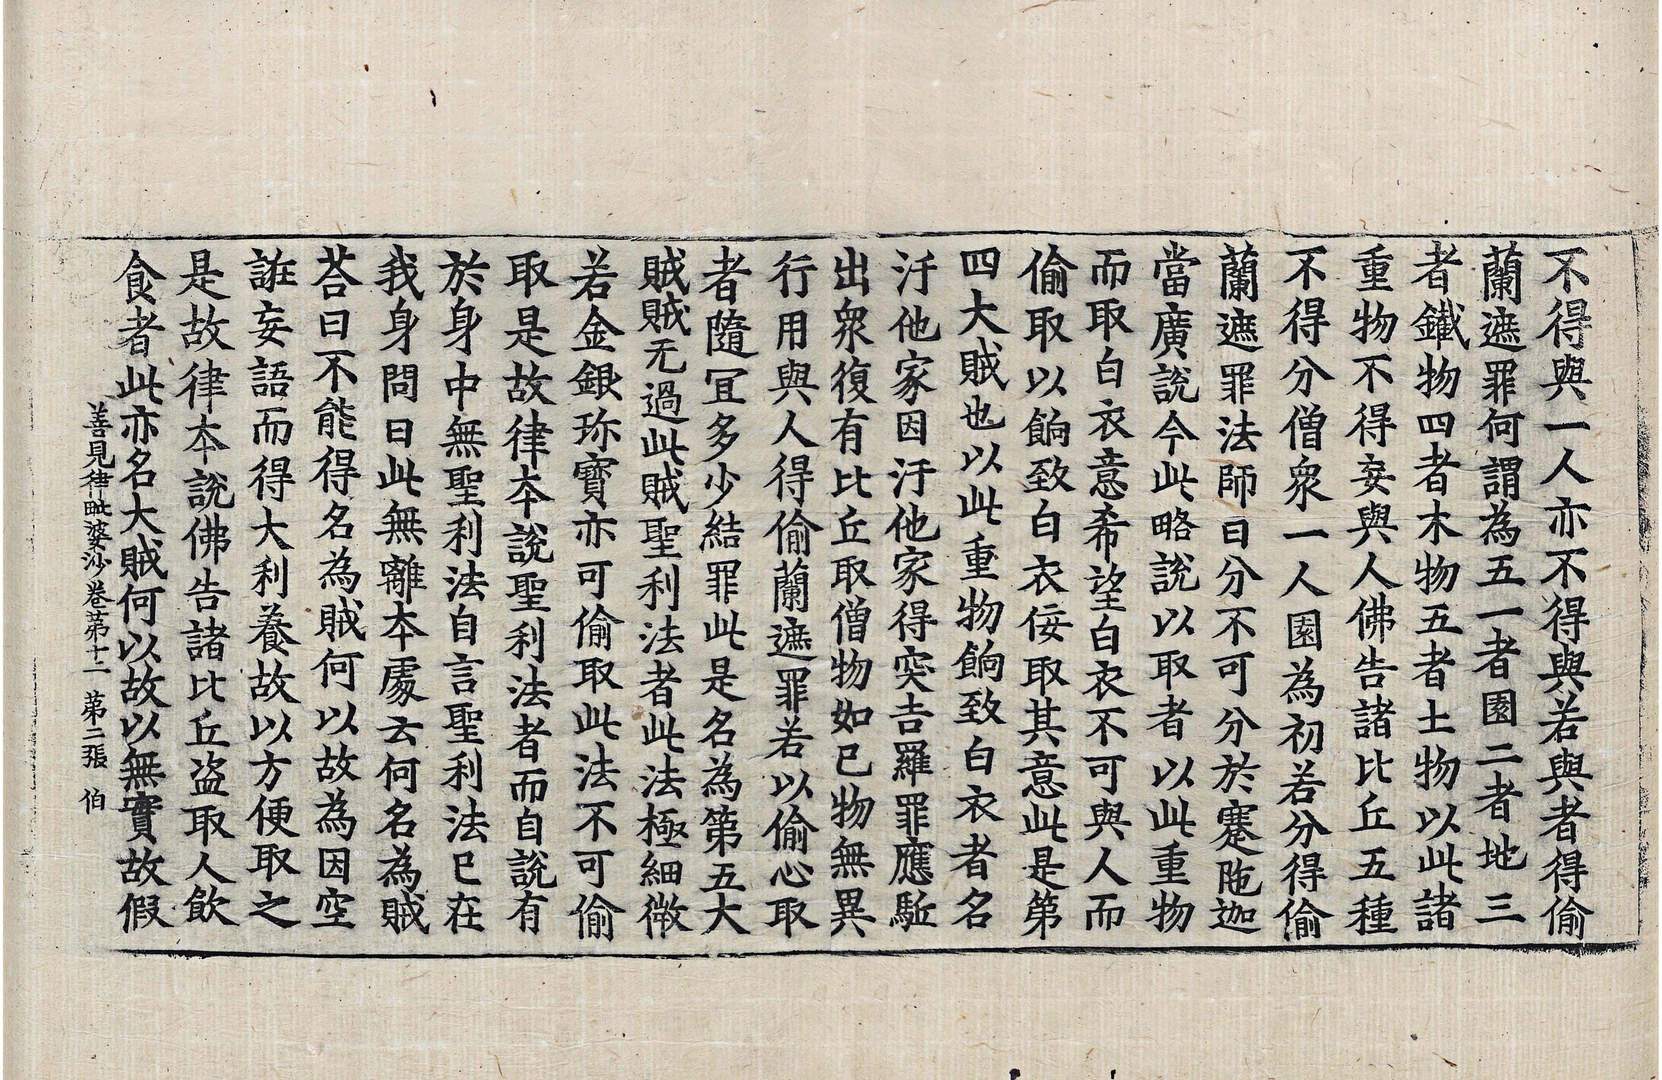 不得與一人亦不得與若與者得偷
蘭遮罪何謂為五一者園二者地三
者鐵物四者木物五者土物以此諸
重物不得妄與人佛告諸比丘五種
不得分僧衆一人園為初若分得偷
蘭遮罪法師曰分不可分於蹇陁迦
當廣說今此略說以取者以此重物
而取白衣意希望白衣不可與人而
偷取以餉致白衣佞取其意此是第
四大賊也以此重物餉致白衣者名
汙他家因汙他家得突吉羅罪應駈
出衆復有比丘取僧物如已物無異
行用與人得偷蘭遮罪若以偷心取
者隨冝多少結罪此是名為第五大
賊賊无過此賊聖利法者此法極細微
若金銀珎寶亦可偷取此法不可偷
取是故律本說聖利法者而自說有
於身中無聖利法自言聖利法已在
我身問曰此無離本處云何名為賊
荅曰不能得名為賊何以故為因空
誑妄語而得大利養故以方便取之
是故律本說佛告諸比丘盜取人飲
食者此亦名大賊何以故以無實故假
善見律毗婆沙卷第十二 第二張 伯